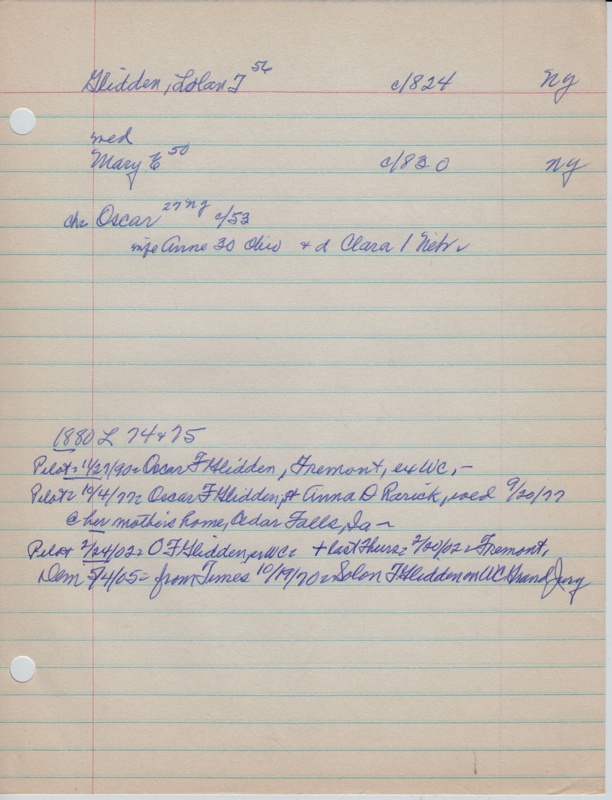 Glidden, Solon F 56 c/824 NY
wed
Mary E 50 c/830 NY
ch= Oscar 27 NY c/53
wife Anne 30 Ohio + d Clara 1 Nebr
1880 L 74 & 75
Pilot= 11/27/90= Oscar F Glidden, Fremont, ex WC, -
Pilot= 10/4/77= Oscar F Glidden, & Anna D Rarick, wed 9/20/77
@ her mother's home, Cedar Falls, Ia -
Pilot 2/24/02= O F Glidden, ex WC= + last Thurs= 2/20/02= Fremont,
Dem 5/4/05= from Times 10/19/70= Solon F Glidden on WC Grand Jury